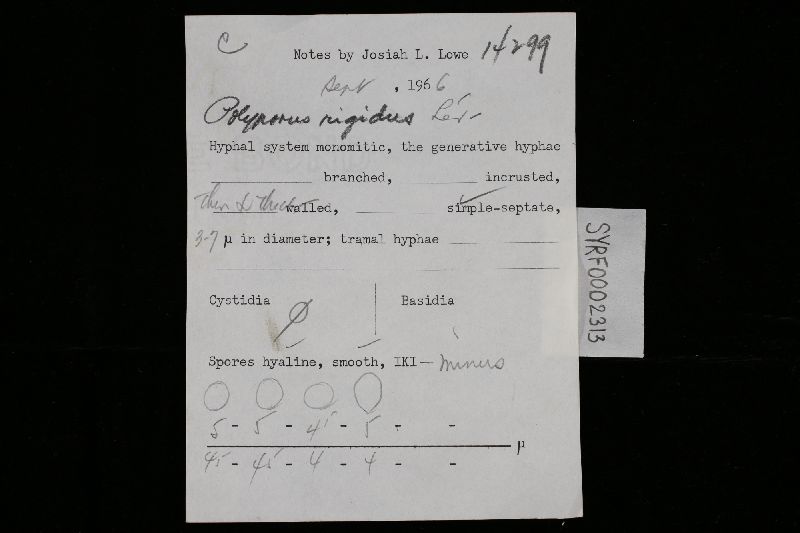 C
Notes by Josiah L. Lowe 14299
Sept , 1966
Polyporus rigidus Lév.
Hyphal system monomitic, the generative hyphae
branched, incrusted,
thin to thick walled, simple-septate,
3-7 µ in diameter; tramal hyphae
Cystidia Basidia
Spores hyaline, smooth, IKI— minus
5 - 5 - 45 - 5 - -
µ
45 - 45 - 4 - 4 - -
SYRF0002313